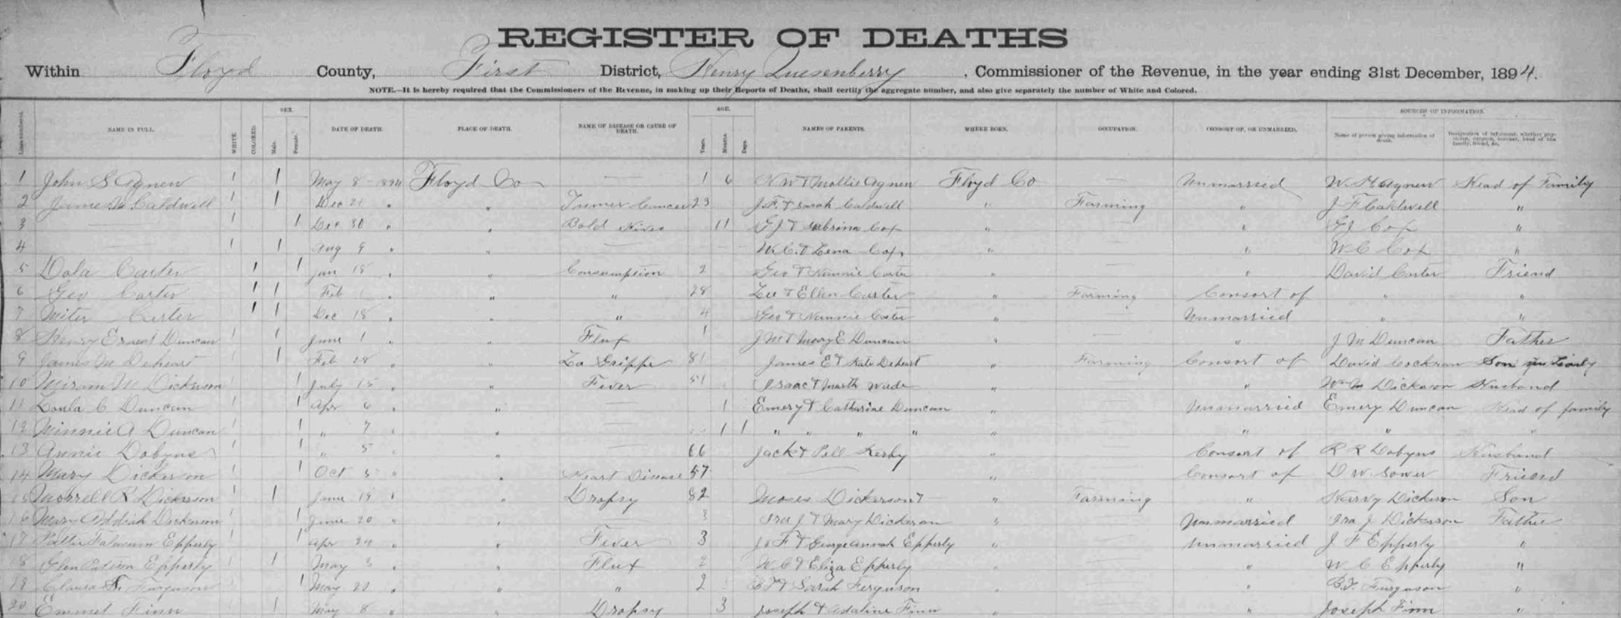 REGISTER OF DEATHS
Within Floyd County, First District, Henry Quesenberry, Commissioner of the Revenue, in the year ending 31st December, 1894.
NOTE.—It is hereby required that the Commissioners of the Revenue, in making up their Reports of Deaths, shall certify the aggregate number, and also give separately the number of White and Colored.
SEX. AGE. SOURCES OF INFORMATION.
NAME IN FULL. WHITE. COLORED. Male. Female. DATE OF DEATH. PLACE OF DEATH. NAME OF DISEASE OR CAUSE OF DEATH. Years. Months. Days. NAMES OF PARENTS. WHERE BORN. OCCUPATION. CONSORT OF, OR UNMARRIED. Name of person giving information of death.
1 John S Agnew 1 1 May 8 1894 Floyd Co — 1 6 N W & Mollie Agnew Floyd Co — Unmarried Agnew Head of Family
2 James Caldwell 1 1 Dec 21 " " Cancer 23 J. F. & Sarah Caldwell " Farming " J F Caldwell "
3 — 1 1 Dec 30 " " Bold Hives 11 G J & Sabrina Cox " — " G J Cox "
4 — 1 1 Aug 9 " " — W. C. & Lena Cox " — " W C Cox "
5 Dola Carter 1 1 Jan 18 " " Consumption 2 Geo & Nannie Carter " — " David Carter Friend
6 Geo Carter 1 1 Feb " " " 28 Lee & Ellen Carter " Farming Consort of " "
7 Miter Carter 1 1 Dec 18 " " " 4 Geo & Nannie Carter " — Unmarried " "
8 Henry Ernest Duncan 1 1 June 1 " " Flux 1 J M & Mary E Duncan " — " J M Duncan Father
9 James M Dehart 1 1 Feb 28 " " La Grippe 81 James E & Kate Dehart " Farming Consort of David Cockram Son
10 M Dickerson 1 1 July 15 " " Fever 51 Isaac & Wade " — " Wm Dickerson Husband
11 Loula C Duncan 1 1 Apr 6 " " — 1 Emery & Catharine Duncan " — Unmarried Emery Duncan Head of family
12 Minnie A Duncan 1 1 " 7 " " — 1 1 " " " " " — " " "
13 Annie Dobyns 1 1 " 5 " " — 66 Jack & Kerby " — Consort of R R Dobyns Husband
14 Mary Dickerson 1 1 Oct 5 " " Heart Disease 57 — " — Consort of D W Sower Friend
15 R Dickerson 1 1 June 19 " " Dropsy 82 Moses Dickerson & " Farming " Harvy Dickerson Son
16 Mary Dickerson 1 1 June 20 " " — 3 Ira J & Mary Dickerson " — Unmarried Ira J Dickerson Father
17 Epperly 1 1 Apr 24 " " Fever 3 J F & Epperly " — Unmarried J F Epperly "
18 Epperly 1 1 May 3 " " Flux 2 W C & Eliza Epperly " — " W C Epperly "
19 Ferguson 1 1 May 20 " " " 2 & Sarah Ferguson " — " Ferguson "
20 Emmet Finn 1 1 May 8 " " Dropsy 3 Joseph & Adaline Finn " — " Joseph Finn "